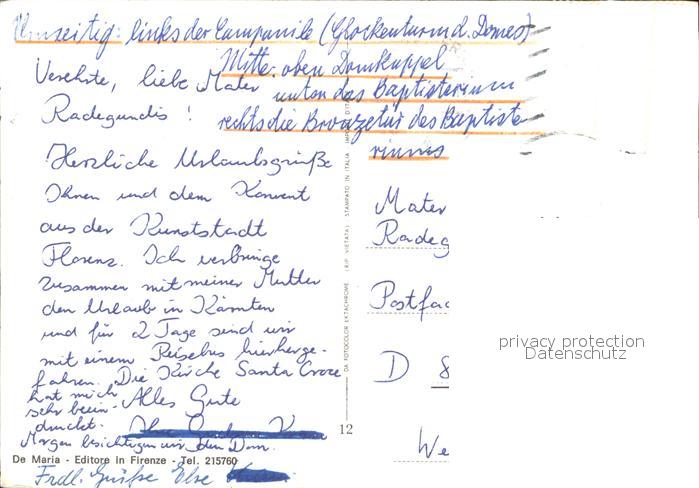 Umseitig: links der Campanile (Glockenturm d. Domes)
Mitte: oben Domkuppel
unten das Baptisterium
rechts die Bronzetür des Baptiste
riums
Verehrte, liebe Mater
Radegundis!
Herzliche Urlaubsgrüße
Ihnen und dem Konvent
aus der Kunststadt
Florenz. Ich verbringe
zusammen mit meiner Mutter
den Urlaub in Kärnten
und für 2 Tage sind wir
mit einem Reisebus hierherge-
fahren. Die Kirche Santa Croce
hat mich
sehr beein-
druckt.
Alles Gute
Morgen besichtigen wir den Dom.
De Maria - Editore in Firenze - Tel. 215760
Frdl. Grüße Else
DA FOTOCOLOR EKTACHROME (RIP. VIETATA) STAMPATO IN ITALIA
12
Mater
Radeg
Postfac
D 8
We
privacy protection
Datenschutz